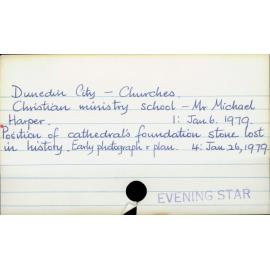 Dunedin City - Churches.
Christian ministry school - Mr Michael
Harper. 1: Jan 6. 1979.
Position of cathedral's foundation stone lost
in history. Early photograph & plan. 4: Jan 26, 1979
EVENING STAR